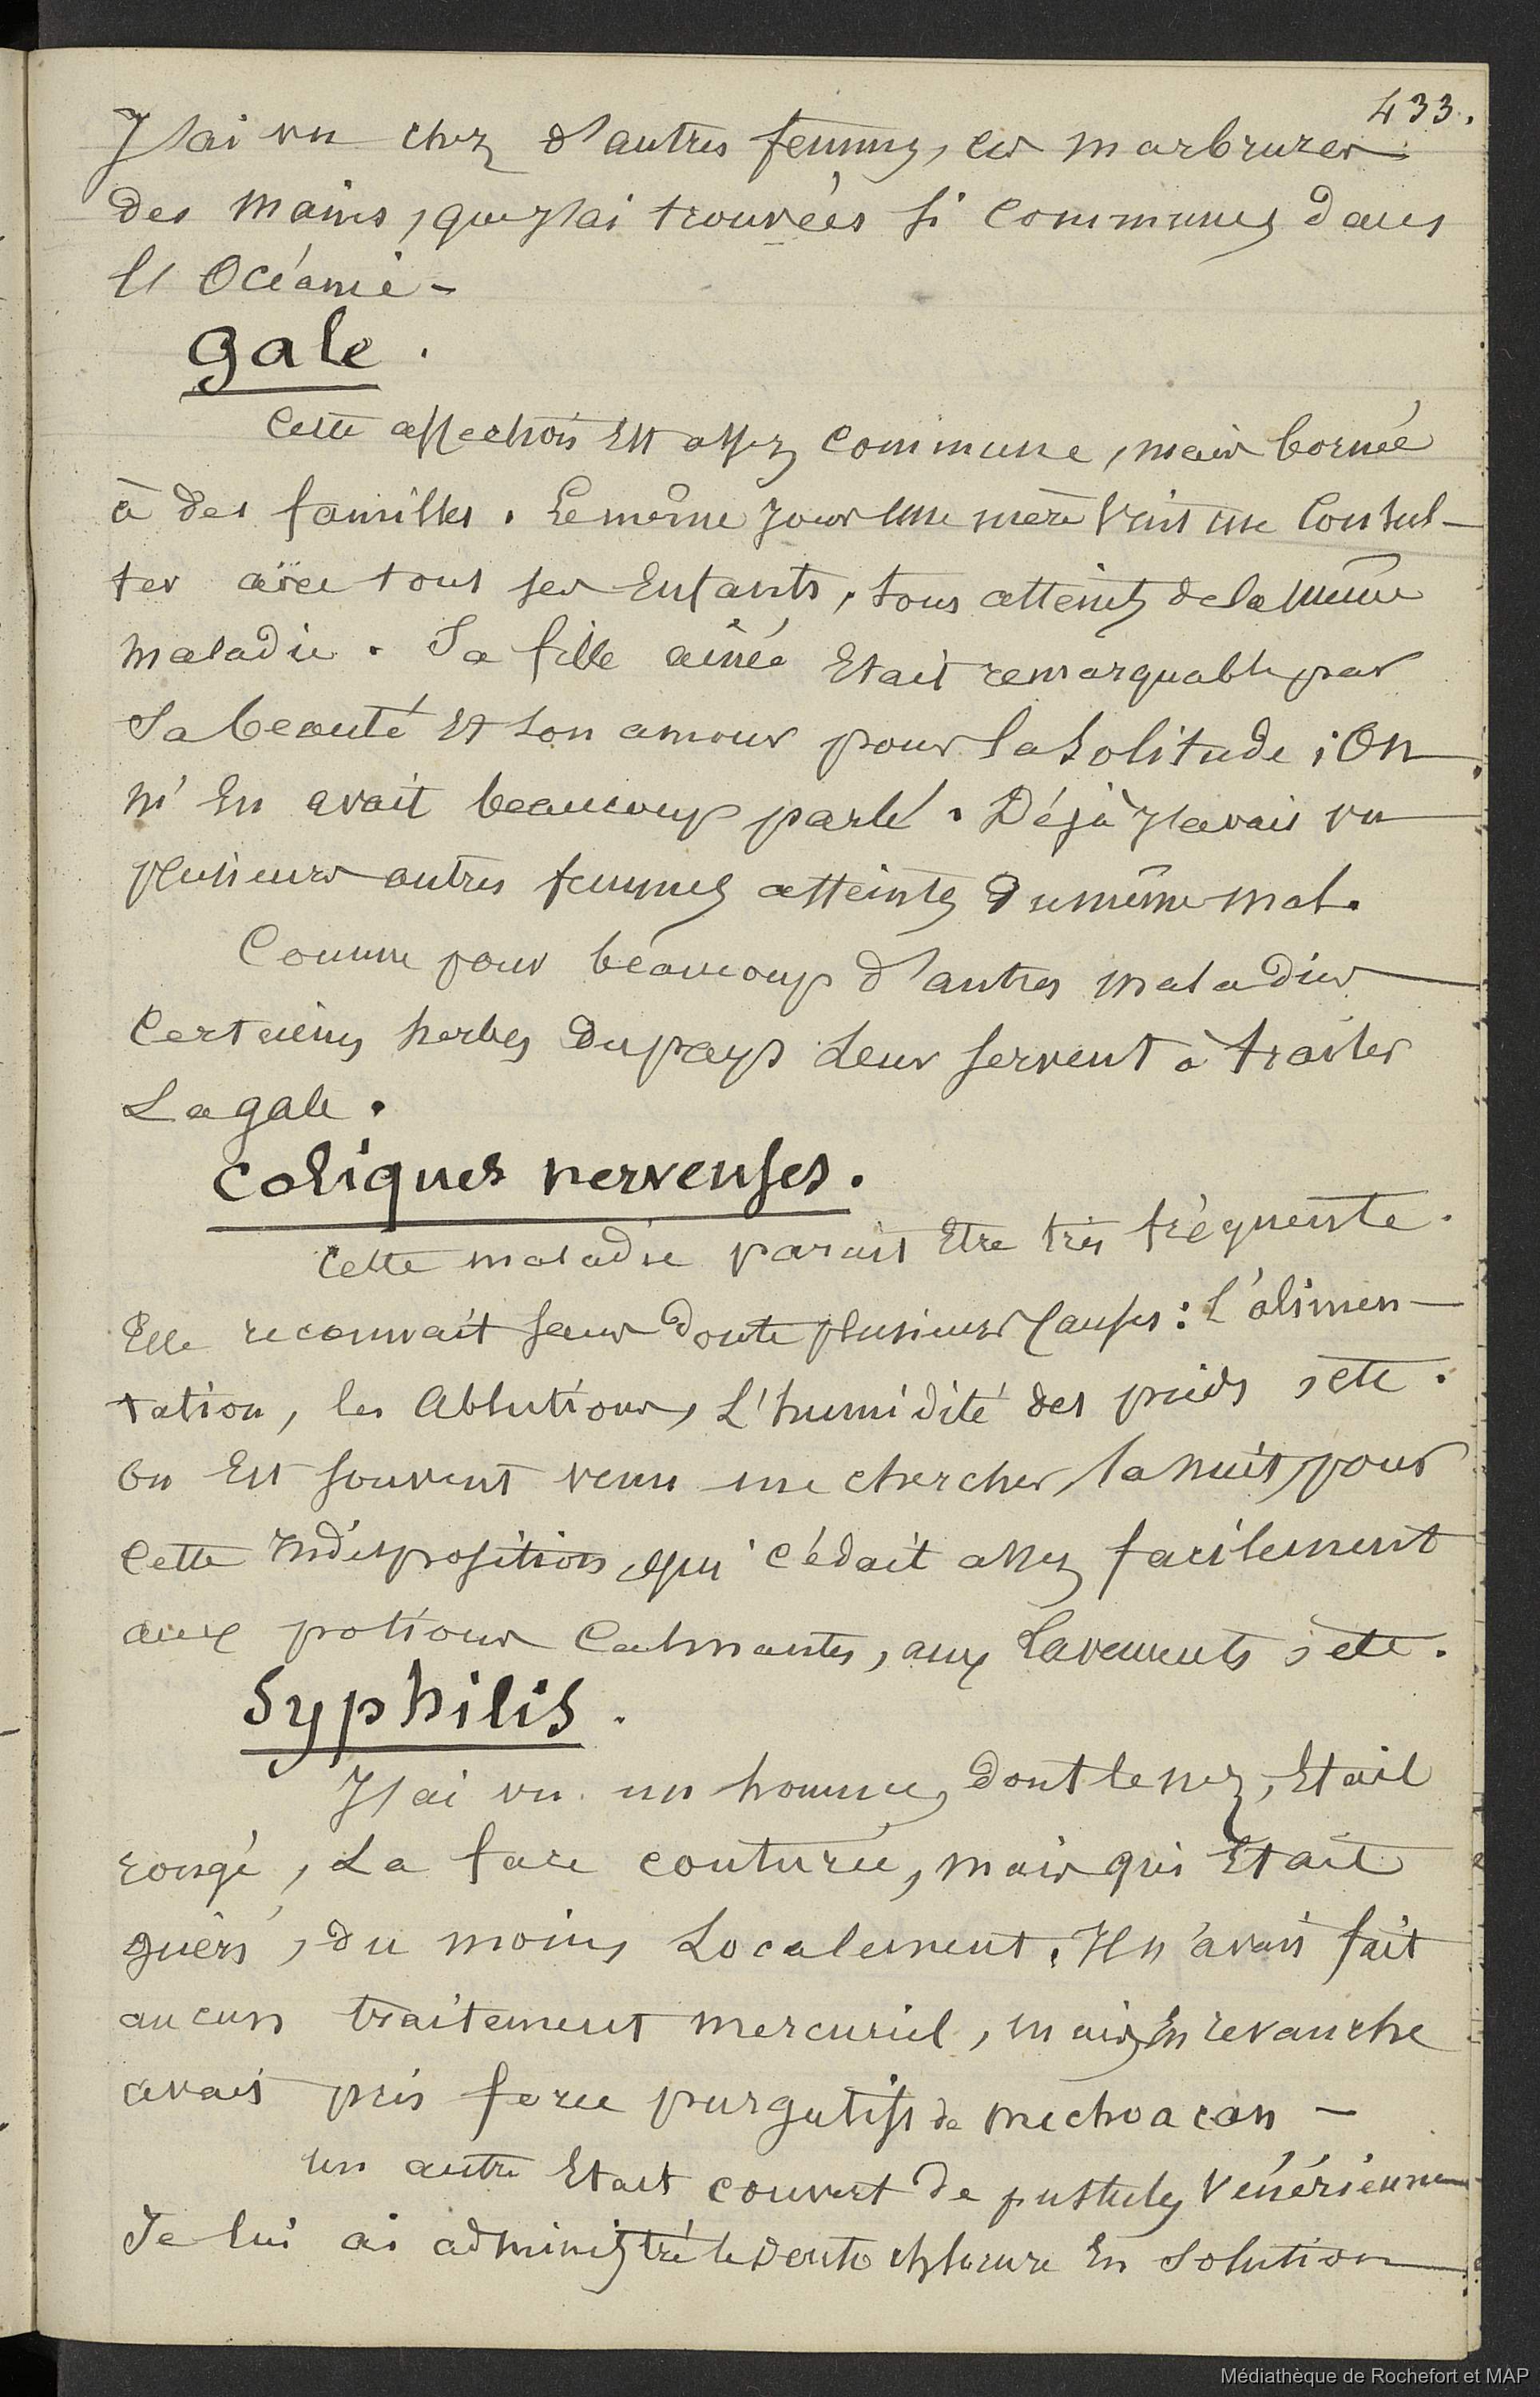 433.
J'ai vu chez d'autres femmes, ces marbrures
des mains, que j'ai trouvées si communes dans
l'Océanie -
gale.
Cette affection est assez commune, mais bornée
à des familles. Le même jour une mère vint me consul-
ter avec tous ses enfants, tous atteints de la même
maladie. Sa fille ainée était remarquable par
sa beauté et son amour pour la solitude ; On
m'en avait beaucoup parlé. Déjà j'avais vu
plusieurs autres femmes atteintes du même mal.
Comme pour beaucoup d'autres maladies
certaines herbes du pays leur servent à traiter
la gale.
coliques nerveuses.
Cette maladie parait être très fréquente.
Elle reconnait sans doute plusieurs causes : l'alimen-
tation, les ablutions, l'humidité des pieds, etc.
On est souvent venu me chercher, la nuit, pour
cette indisposition, qui cédait assez facilement
aux potions calmantes, aux lavements, etc.
Syphilis.
J'ai vu un homme, dont le nez, était
rongé, la face couturée, mais qui était
guéri, du moins localement. Il n'avait fait
aucun traitement mercuriel, mais, en revanche
avait pris force purgatifs de mechoacan -
un autre était couvert de pustules vénériennes
Je lui ai administré le deuto chlorure en solution
Médiathèque de Rochefort et MAP